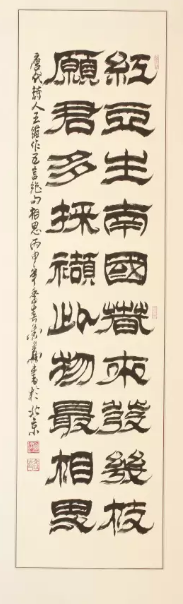 紅豆生南國春來發幾枝
願君多採襭此物最相思
唐代詩人王維作五言絕句相思丙申年季春華書於北京